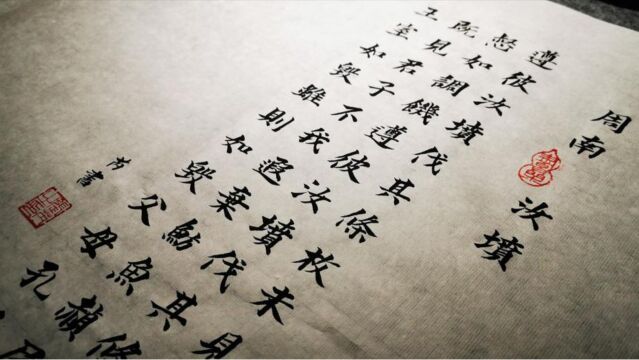 周南 汝墳
遵彼汝墳伐其條枚未見
惄如調饑遵彼汝墳伐其條
既見君子不我遐棄魴魚赬
王室如毀雖則如毀父母孔